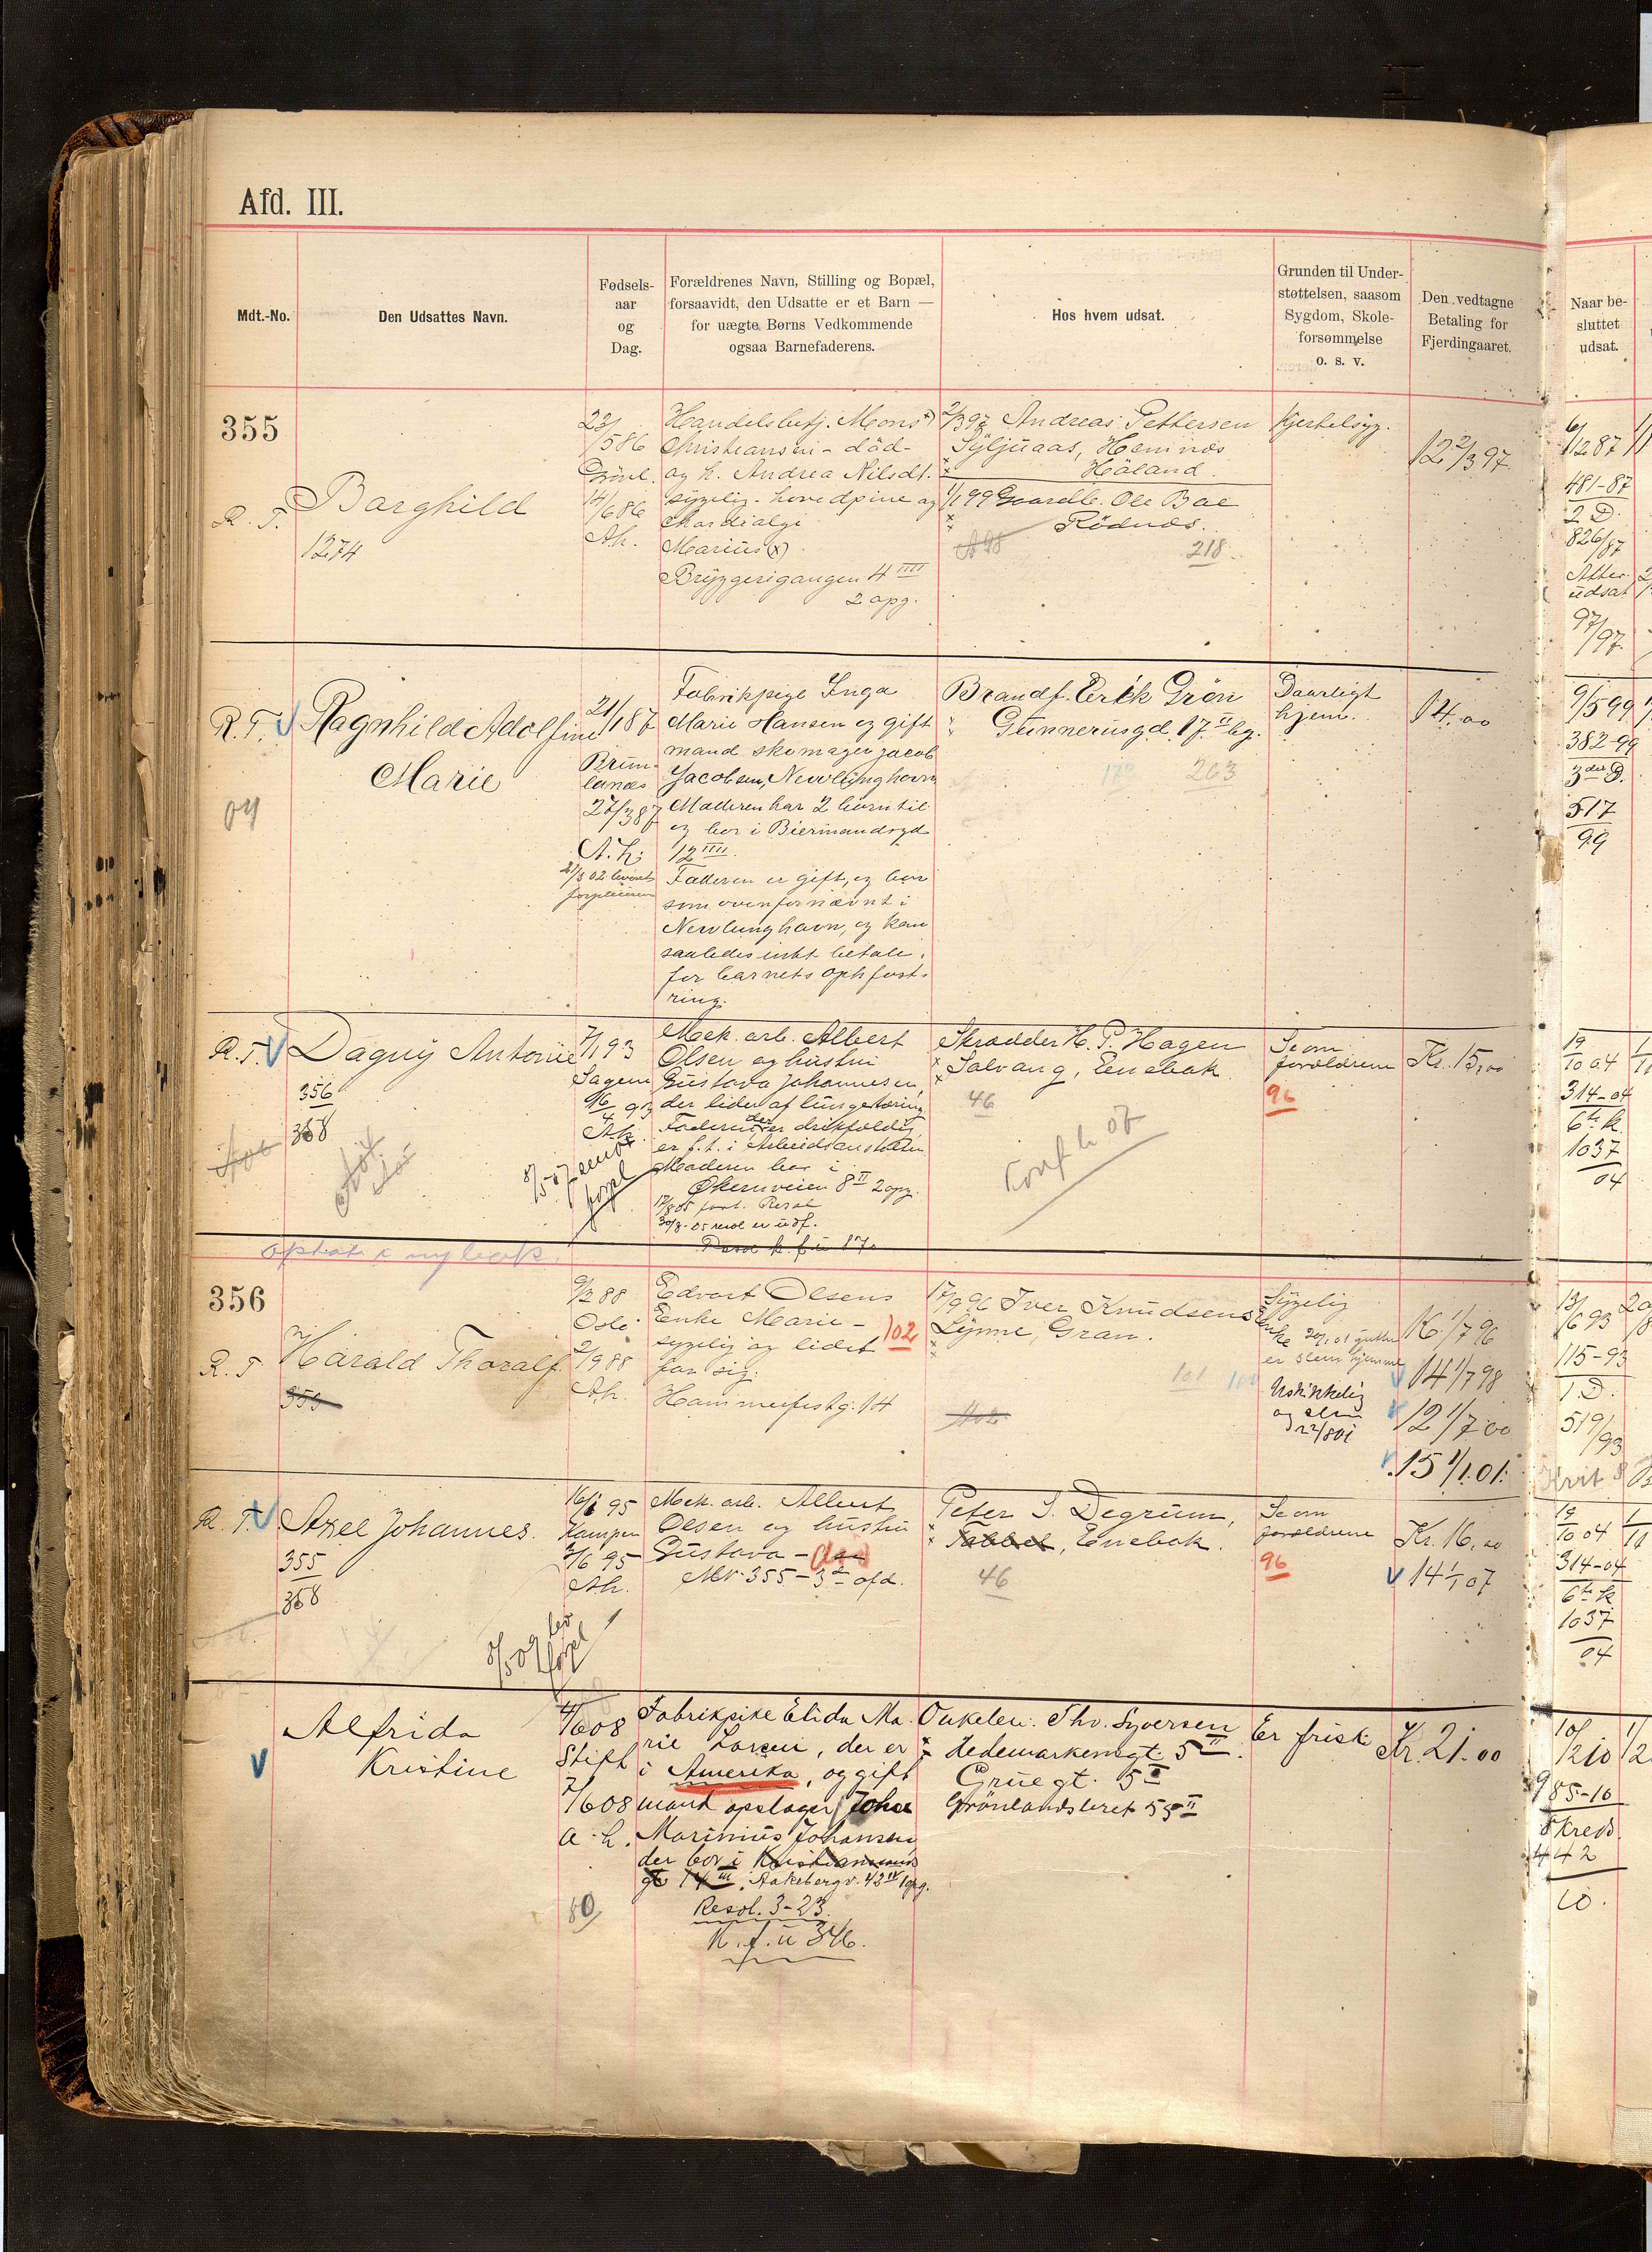 Afd. III.
Mdt.-No.
Den Udsattes Navn.
Fødsels-
aar
og
Dag.
Forældrenes Navn, Stilling og Bopæl,
forsaavidt, den Udsatte er et Barn —
for uægte Børns Vedkommende
ogsaa Barnefaderens.
Hos hvem udsat.
Grunden til Under-
støttelsen, saasom
Sygdom, Skole-
forsømmelse
o. s. v.
Den vedtagne
Betaling for
Fjerdingaaret.
Naar be-
sluttet
udsat.
355
R. T.
Barghild
1274
23/586
Grønl.
14/686
Ah.
Handelsbetj. Mons x)
Christiansen - død -
og h. Andrea Nilsdt.
sygelig - hovedpine og
kardialgi
Marius (x)
Bryggerigangen 4 IIII
2 opg.
2/397 Andreas Pettersen
Syljuaas, Hemnæs
Høland.
1/199 Gaardb. Ole Boe
Rødnæs.
A98
218.
Kjertelsyg.
12 2/3 97.
6/1287
481-87
2 D.
826/87
Atter
udsat
97/97
R. T. V
Ragnhild Adolfine
Marie
04
21/187
Brun-
lanæs
27/387
A. h.
21/502 levert
forpleieren
Fabrikpige Inga
Marie Hansen og gift
mand skomager Jacob
Jacobsen, Nevlunghavn
Moderen har 2 børn til
og bor i Biermandsgd
12 IIII.
Faderen er gift, og bor
som ovenfornævnt i
Nevlunghavn, og kan
saaledes intet betale
for barnets opfost-
ring.
Brandf. Erik Grøn
Gunnerusgd. 17 II bg.
172 263
Daarligt
hjem.
14.00
9/599
382-99
3die D.
517
99
R. T. V
Dagny Antonie
356
368
7/193
Sagene
16/4 93
Ah.
Mek. arb. Albert
Olsen og hustru
Gustava Johannesen,
der lider af lungetæring
Faderen, der er drikfældig
er f. t. i Arbeidsanstalten
Moderen bor i
Økernveien 8 II 2 opg.
Skrædder H. P. Hagen
Solvang, Enebak
46
Konf h 07
Se om
forældrene
96
Kr. 15,00
19
10 04
314-04
6te k.
1037
04
optat i ny bok.
356
R. T
Harald Thoralf
9/288
Oslo
2/988
Ah.
Edvart Olsens
Enke Marie -
sygelig og lidet
for sig.
Hammerfestg. 14
102
17/996 Iver Knudsens Enke
Lynne, Gran.
101 100
Sygelig
20/1 01 gutten
er slem hjemme
Uskikkelig
og slem
22/801
16 1/7 96
V 14 1/7 98
V 12 1/7 00
V 15 1/1 01.
13/693
115-93
1. D.
519/93
R. T. V
Axel Johannes.
355
368
16/1 95
Kampen
3/6 95
Ah.
Mek. arb. Albert
Olsen og hustru
Gustava -
M.N. 355 - 3die afd.
Peter I. Degrum,
Enebak.
46
Se om
forældrene
96
Kr. 16,00
V 14 1/1 07
19
10 04
314-04
6te k
1037
04
V
Alfrida
Kristine
4/608
Stift
7/608
a. h.
80
Fabrikpike Elida Ma-
rie Larsen, der er
i Amerika, og gift
mand opslager Johan
Marinius Johansen
der bor i Kristiansunds
gt 14 III. Aakebergv. 42 IV 1opg.
Resol. 3-23.
K. f. u 346.
Onkelen. Thv. Syversen
Hedemarkensgt. 5 II.
Gruegt. 5 II
Grønlandsleret 55 II
Er frisk
Kr. 21.00
10/1210
985-10
8 Kreds
442
10.